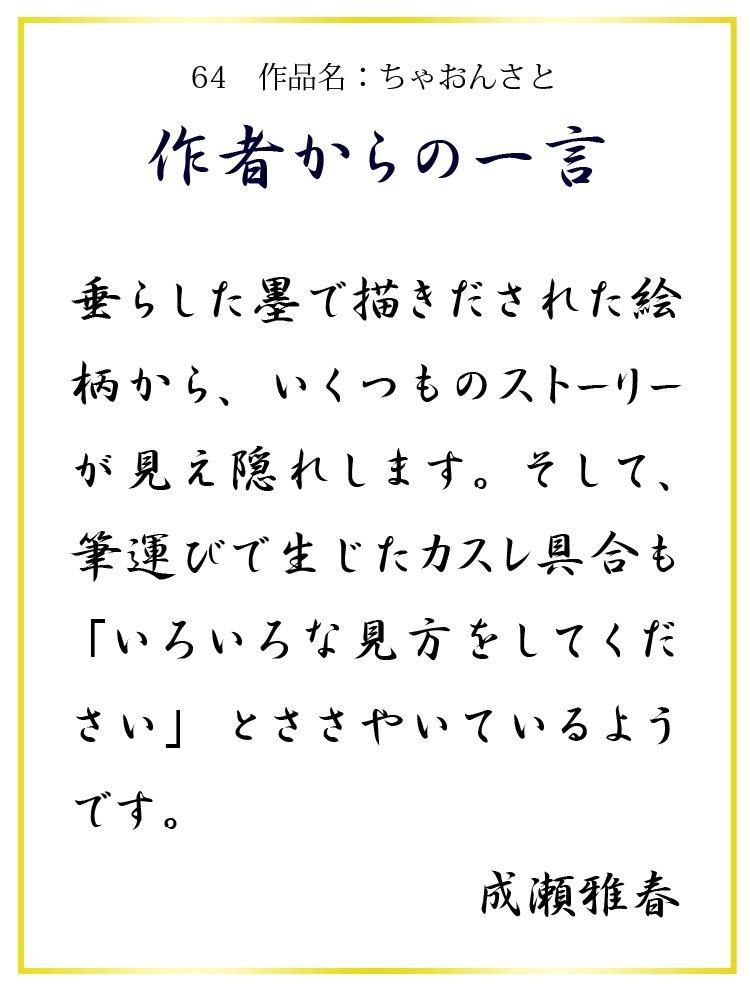 64　作品名：ちゃおんさと
作者からの一言
垂らした墨で描きだされた絵
柄から、いくつものストーリー
が見え隠れします。そして、
筆運びで生じたカスレ具合も
「いろいろな見方をしてくだ
さい」とささやいているよう
です。
成瀬雅春